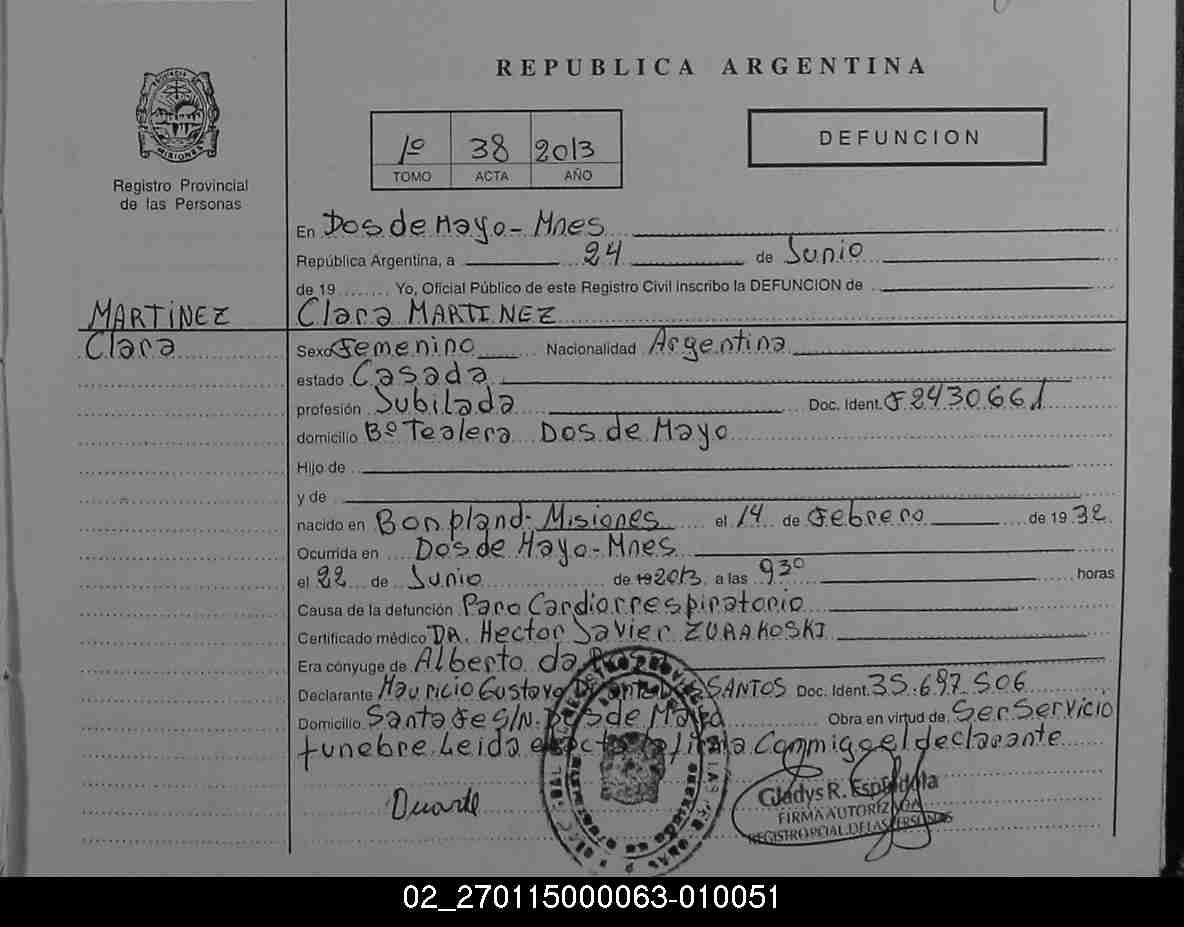 REPUBLICA ARGENTINA
MISIONES
Registro Provincial
de las Personas
1º 38 2013
TOMO ACTA AÑO
DEFUNCION
En Dos de Mayo - Mnes
República Argentina, a 24 de Junio
de 19 ........ Yo, Oficial Público de este Registro Civil inscribo la DEFUNCION de
MARTINEZ
Clara
Clara MARTINEZ
Sexo Femenino Nacionalidad Argentina
estado Casada
profesión Jubilada Doc. Ident. F2430661
domicilio Bº Tealera Dos de Mayo
Hijo de
y de
nacido en Bonpland - Misiones el 14 de Febrero de 1932
Ocurrida en Dos de Mayo - Mnes
el 22 de Junio de 19 2013 a las 9 30 horas
Causa de la defunción Paro Cardiorrespiratorio
Certificado médico DR. Hector Javier ZURAKOSKI
Era cónyuge de Alberto da
Declarante Mauricio Gustavo SANTOS Doc. Ident. 35.697.506
Domicilio Santa Fe S/N. Dos de Mayo Obra en virtud de Ser Servicio
funebre Leida el acta la firma Conmigo el declarante
Duarte
Gladys R. Espindola
FIRMA AUTORIZADA
REGISTRO PCIAL. DE LAS PERSONAS
02_270115000063-010051